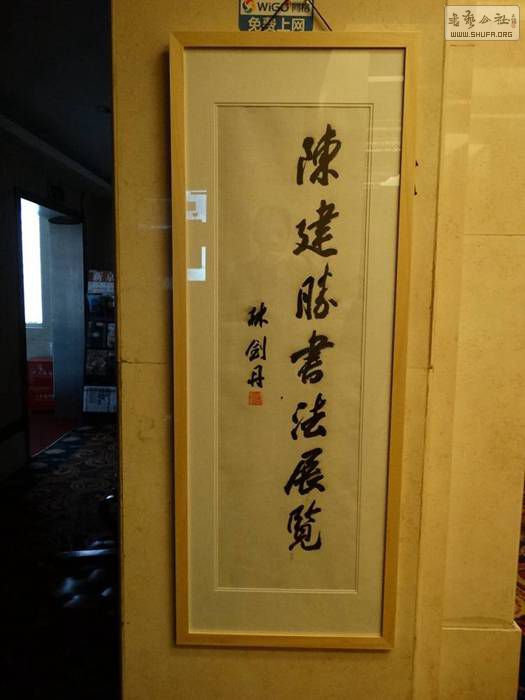 WiGO 网格
免费上网
书艺公社
WWW.SHUFA.ORG
陳建勝書法展覽
林剑丹